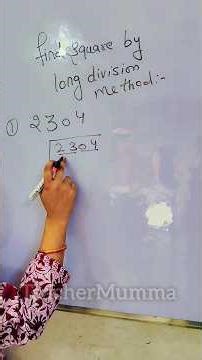 find square by
long division
method:-
① 2304
2304
sherMumma